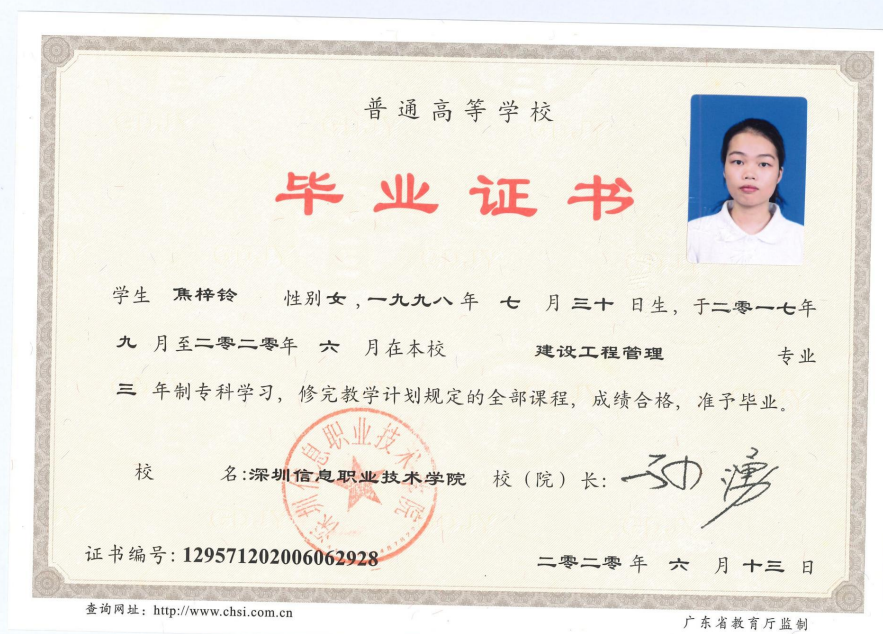 普通高等学校
毕业证书
学生 焦梓铃 性别 女 ,一九九八 年 七 月 三十 日生, 于二零一七年
九 月至二零二零年 六 月在本校 建设工程管理 专业
三 年制专科学习, 修完教学计划规定的全部课程, 成绩合格, 准予毕业。
校 名:深圳信息职业技术学院 校(院)长:
深圳信息职业技术学院
证书编号: 129571202006062928 二零二零 年 六 月 十三 日
查询网址: http://www.chsi.com.cn 广东省教育厅监制